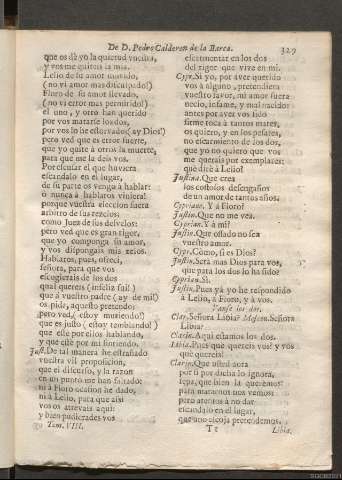 De D. Pedro Calderon de la Barca.
329
que os dè yo la quietud vuestra,
y vos me quiteis la mia.
Lelio de su amor movido,
(no vi amor mas disculpado!)
Floro de su amor llevado,
(no vi error mas permitido!)
el uno, y otro han querido
por vos matarse los dos,
por vos lo he estorvado (ay Dios!)
pero ved que es error fuerte,
que yo quite à otros la muerte,
para que me la deis vos.
Por escusar el que huviera
escandalo en el lugar,
de su parte os vengo à hablar:
ò nunca à hablaros viniera!
porque vuestra eleccion fuera
arbitro de sus rezelos;
como Juez de sus desvelos:
pero ved que es gran rigor,
que yo componga su amor,
y vos dispongais mis zelos.
Hablaros, pues, ofreci,
señora, para que vos
escogierais de los dos
qual quereis (infeliz fui!)
que à vuestro padre (ay de mi!)
os pida, aquesto pretendo:
pero ved, (estoy muriendo!)
que es justo, (estoy temblando!)
que estè por ellos hablando,
y que estè por mi sintiendo.
Just. De tal manera he estrañado
vuestra vil proposicion,
que el discurso, y la razon
en un punto me han faltado:
ni à Floro ocasion he dado,
ni à Lelio, para que assi
vos os atrevais aqui:
y bien pudierades vos
Tom. VIII.
escarmentar en los dos
del rigor que vive en mi.
Cypr. Si yo, por aver querido
vos à alguno, pretendiera
vuestro favor, mi amor fuera
necio, infame, y mal nacido:
antes por aver vos sido
firme roca à tantos mares,
os quiero, y en los pesares,
no escarmiento de los dos,
que yo no quiero que vos
me querais por exemplares:
què dirè à Lelio?
Justina. Que crea
los costosos desengaños
de un amor de tantos años.
Cyprian. Y à Floro?
Justin. Que no me vea.
Cyprian. Y à mi?
Justin. Que ossado no sea
vuestro amor.
Cypr. Como, si es Dios?
Justin. Serà mas Dios para vos,
que para los dos lo ha sido?
Cyprian. Si.
Justin. Pues yà yo he respondido
à Lelio, à Floro, y à vos.
Vanse los dos.
Clar. Señora Libia? Moscon. Señora
Libia?
Clarin. Aqui estamos los dos.
Libia. Pues què quereis vos? y vos
què quereis?
Clarin. Que usted aora
por si por dicha lo ignora,
sepa, que bien la queremos:
para matarnos nos vemos:
pero atentos à no dar
escandalo en el lugar,
que uno escoja pretendemos.
Tt
Libia.